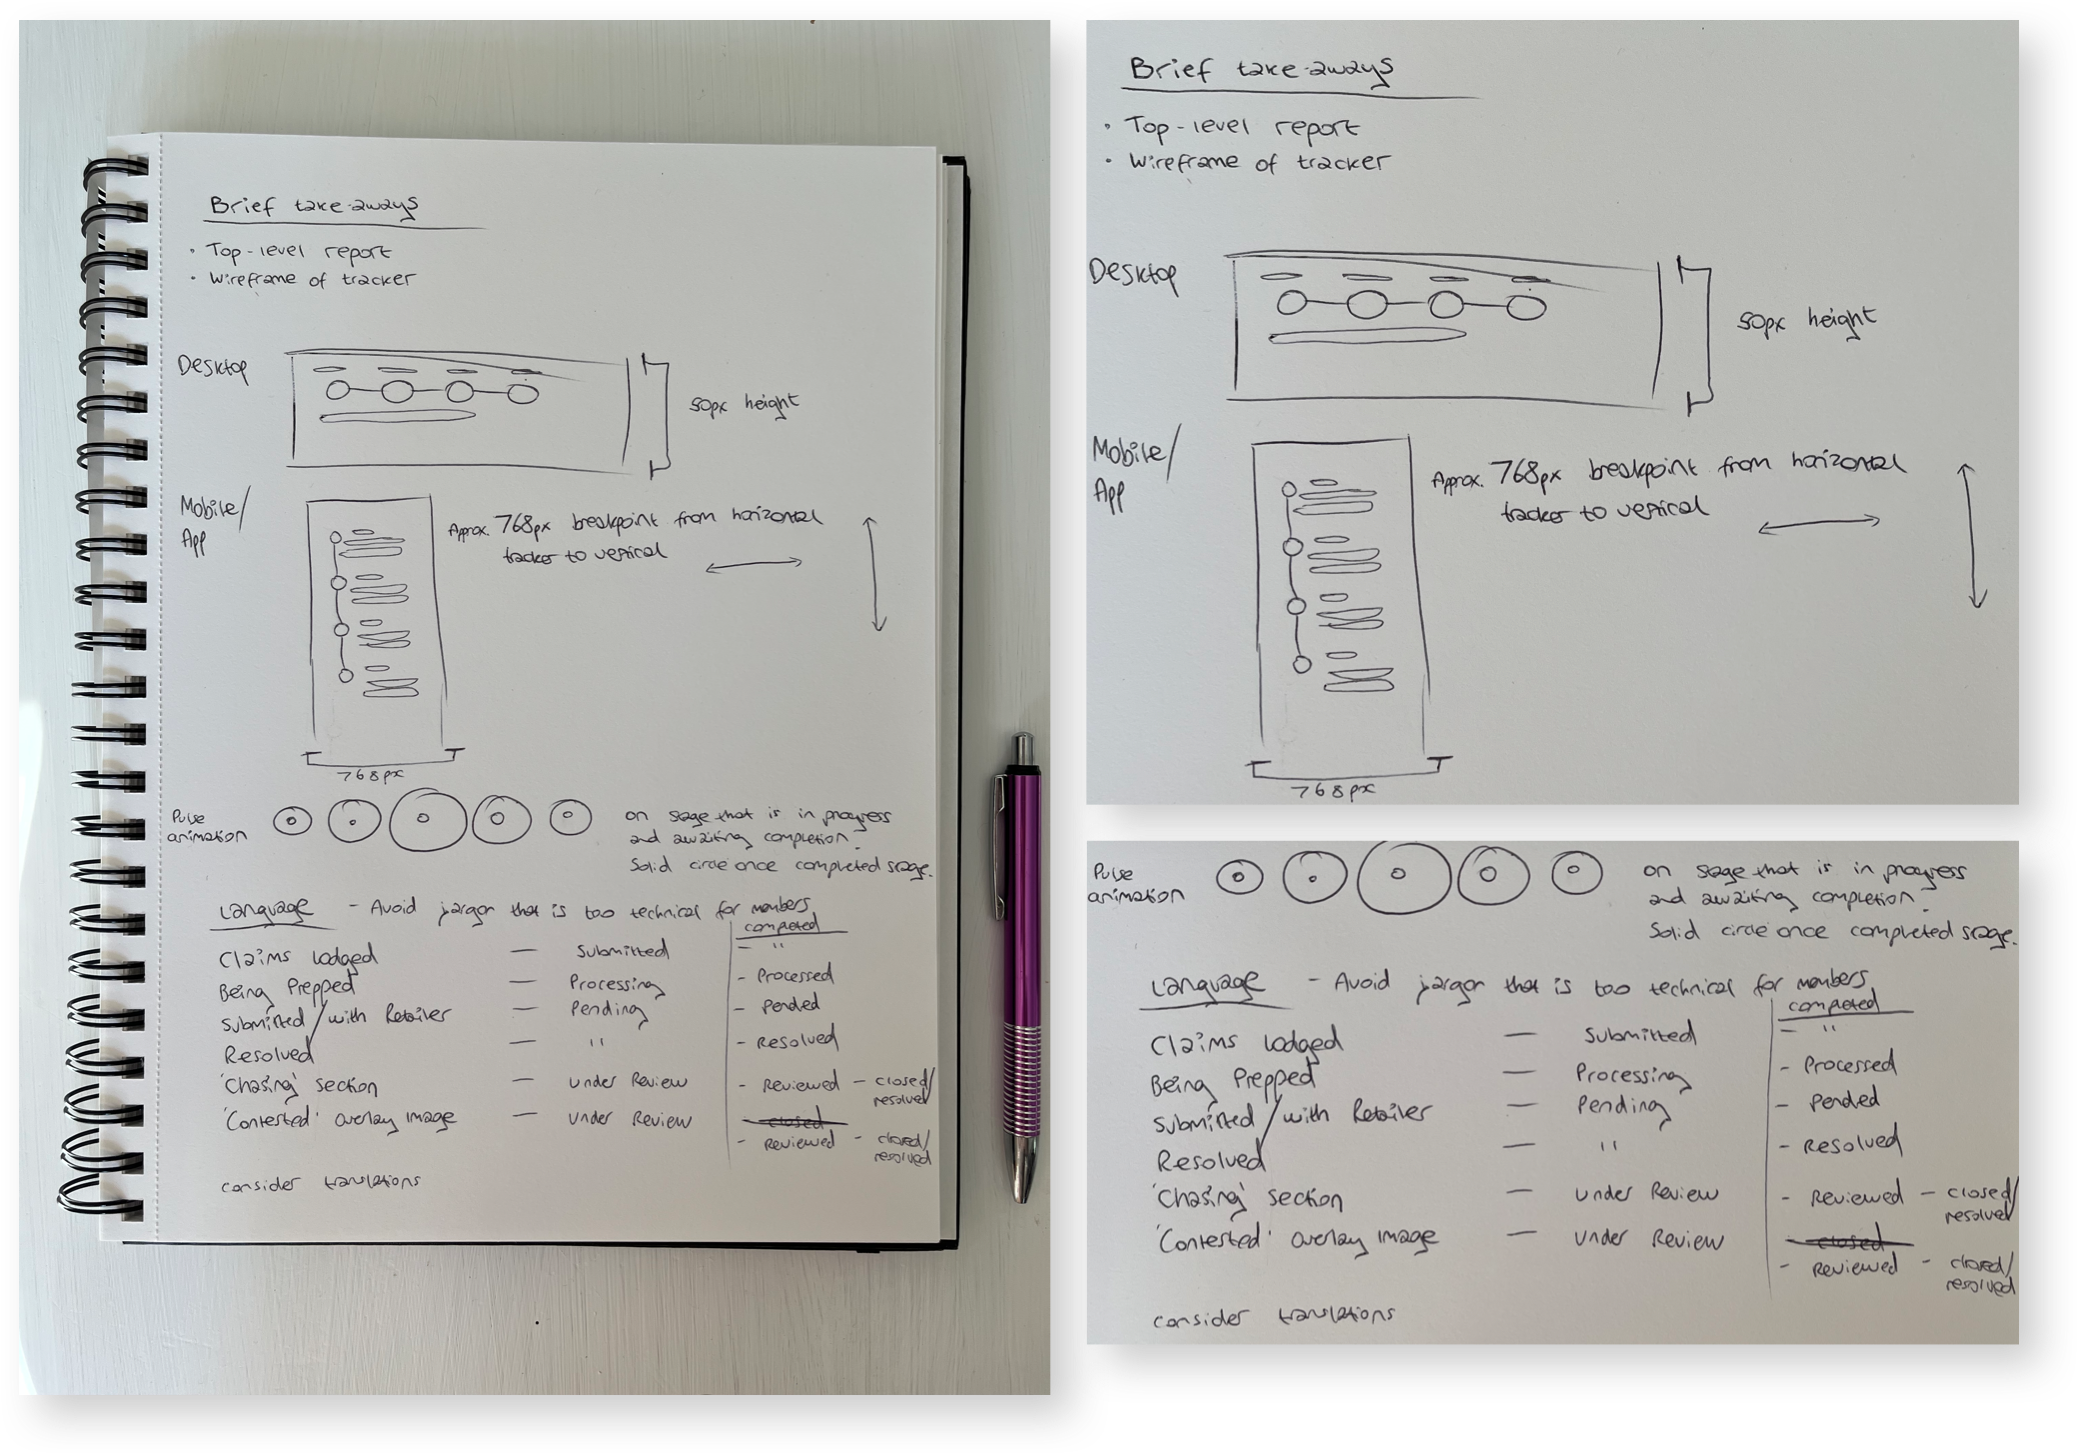 Brief take-aways
· Top-level report
· Wireframe of tracker
Desktop
50px height
Mobile/
App
Approx. 768px breakpoint from horizontal
tracker to vertical
768px
Pulse
animation
on stage that is in progress
and awaiting completion.
Solid circle once completed stage.
Language - Avoid jargon that is too technical for members
completed
Claims lodged — Submitted - "
Being Prepped — Processing - Processed
Submitted/with Retailer — Pending - Pended
Resolved — " - Resolved
'Chasing' section — Under Review - Reviewed - closed/
resolved
'Contested' overlay image — Under Review closed
- Reviewed - closed/
resolved
consider translations
Brief take-aways
· Top-level report
· Wireframe of tracker
Desktop
50px height
Mobile/
App
Approx. 768px breakpoint from horizontal
tracker to vertical
768px
Pulse
animation
on stage that is in progress
and awaiting completion.
Solid circle once completed stage.
Language - Avoid jargon that is too technical for members
completed
Claims lodged — Submitted - "
Being Prepped — Processing - Processed
Submitted/with Retailer — Pending - Pended
Resolved — " - Resolved
'Chasing' section — Under Review - Reviewed - closed/
resolved
'Contested' overlay image — Under Review closed
- Reviewed - closed/
resolved
consider translations